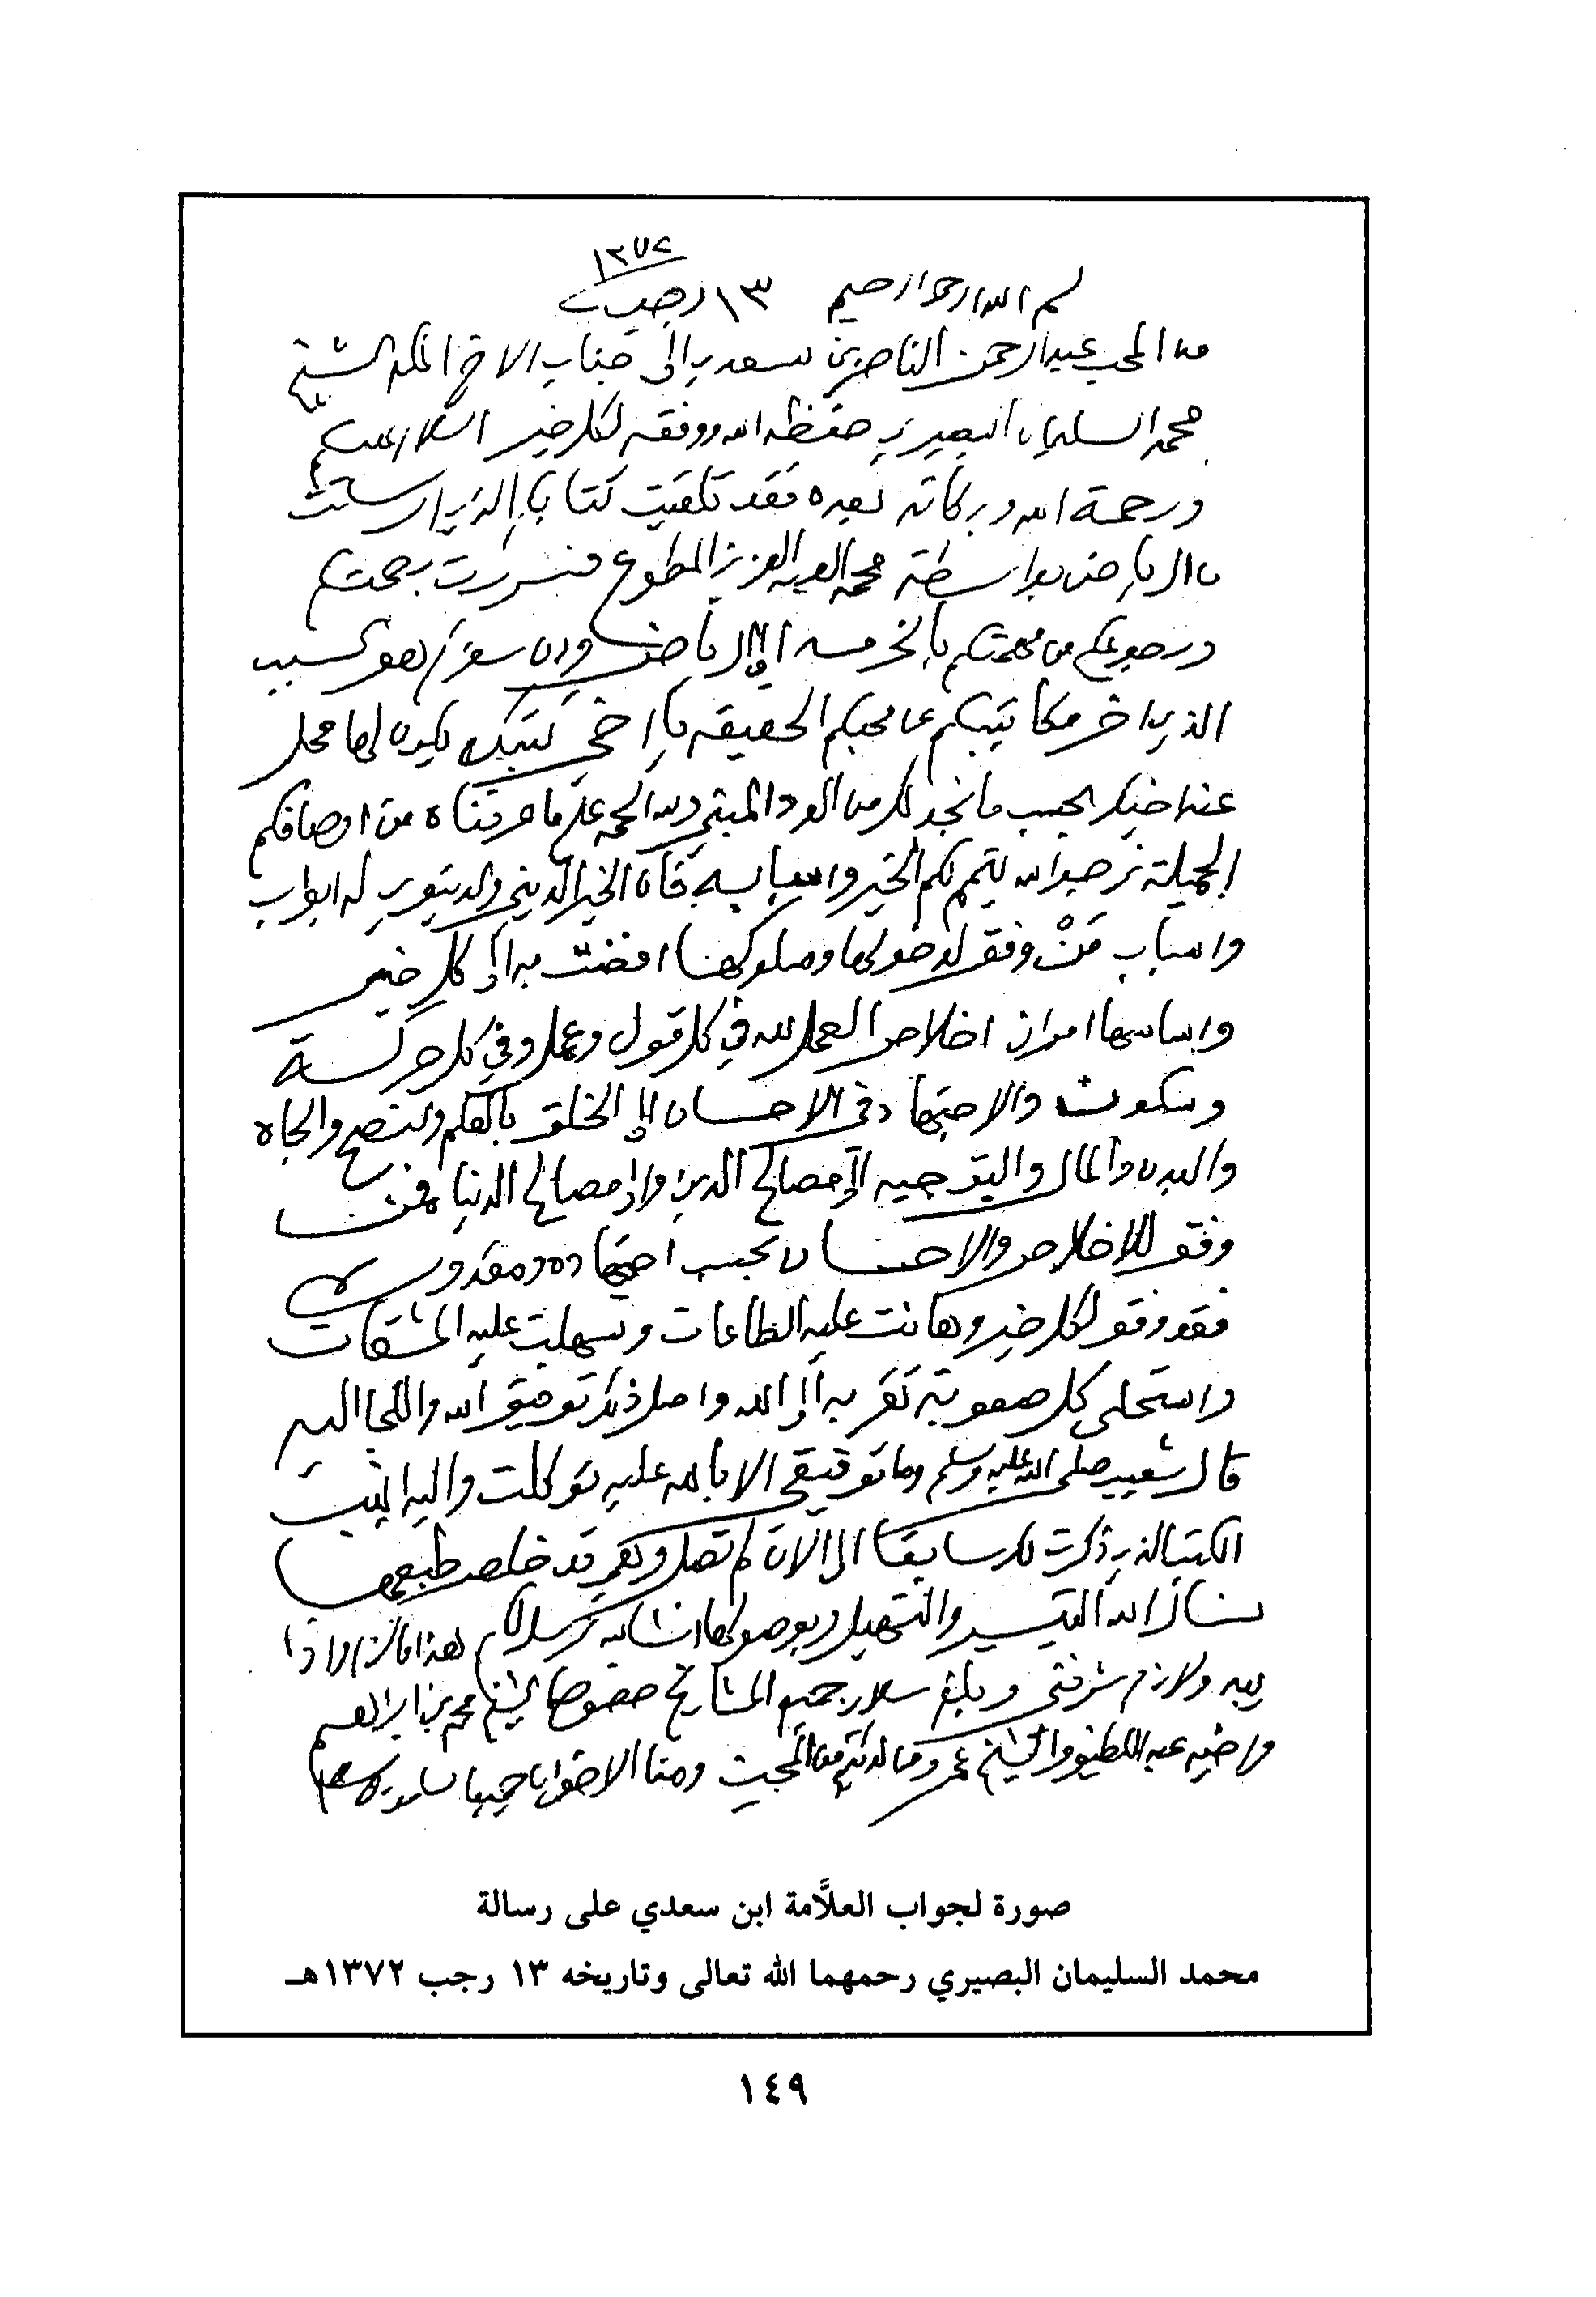 ١٣٧٢
بسم الله الرحمن الرحيم ١٣ رجب
من المحب عبدالرحمن الناصر بن سعدي إلى جناب الاخ المكرم الشيخ
محمد السليمان البصيري حفظه الله ووفقه لكل خير السلام عليكم
ورحمة الله وبركاته بعده فقد تلقيت كتابك الذي ارسلت
من الرياض بواسطة محمد العبد العزيز المطوع فسررت بصحتكم
ورجوعكم من مهمتكم بالخرمه إلى الرياض وان سفركم هو السبب
الذي اخر مكاتيبكم عن محبكم الحقيقه يا اخي كتبك يكون لها محل
عند اخيك بحسب ما نجد لك من الود المبني ولله الحمد على ما عرفناه من اوصافكم
الجميلة نرجو الله يتمم لكم الخير واسبابه فان الخير الديني والدنيوي له ابواب
واسباب مَنْ وفق لدخولها وسلوكها افضت به إلى كل خير
واساسها امران اخلاص العمل لله في كل قول وعمل وفي كل حركة
وسكون والاجتهاد في الاحسان إلى الخلق بالعلم والنصح والجاه
والبدن والمال والتوجيه إلى مصالح الدين والى مصالح الدنيا فمن
وفق للاخلاص والاحسان بحسب اجتهاده ومقدوره
فقد وفق لكل خير وهانت عليه الطاعات وتسهلت عليه المشقات
واستحلى كل صعوبة تقربه إلى الله واصل ذلك توفيق الله والالتجا اليه
قال شعيب صلى الله عليه وسلم وما توفيقي الا بالله عليه توكلت واليه انيب
الكتب الذي ذكرت لك سابقا الى الآن لم تصل وهي قد خلص طبعها
نسأل الله التيسير والتسهيل وبوصولها انشا الله نرسل لكم هذا ما لزم واذا
بدا لازم شرفني وبلغ سلامي جميع المشايخ خصوصا الشيخ محمد بن ابراهيم
واخيه عبد اللطيف والشيخ عمر ومن لديكم من المحبين ومنا الاخوان جميعا
صورة لجواب العلَّامة ابن سعدي على رسالة
محمد السليمان البصيري رحمهما الله تعالى وتاريخه ١٣ رجب ١٣٧٢هـ
١٤٩